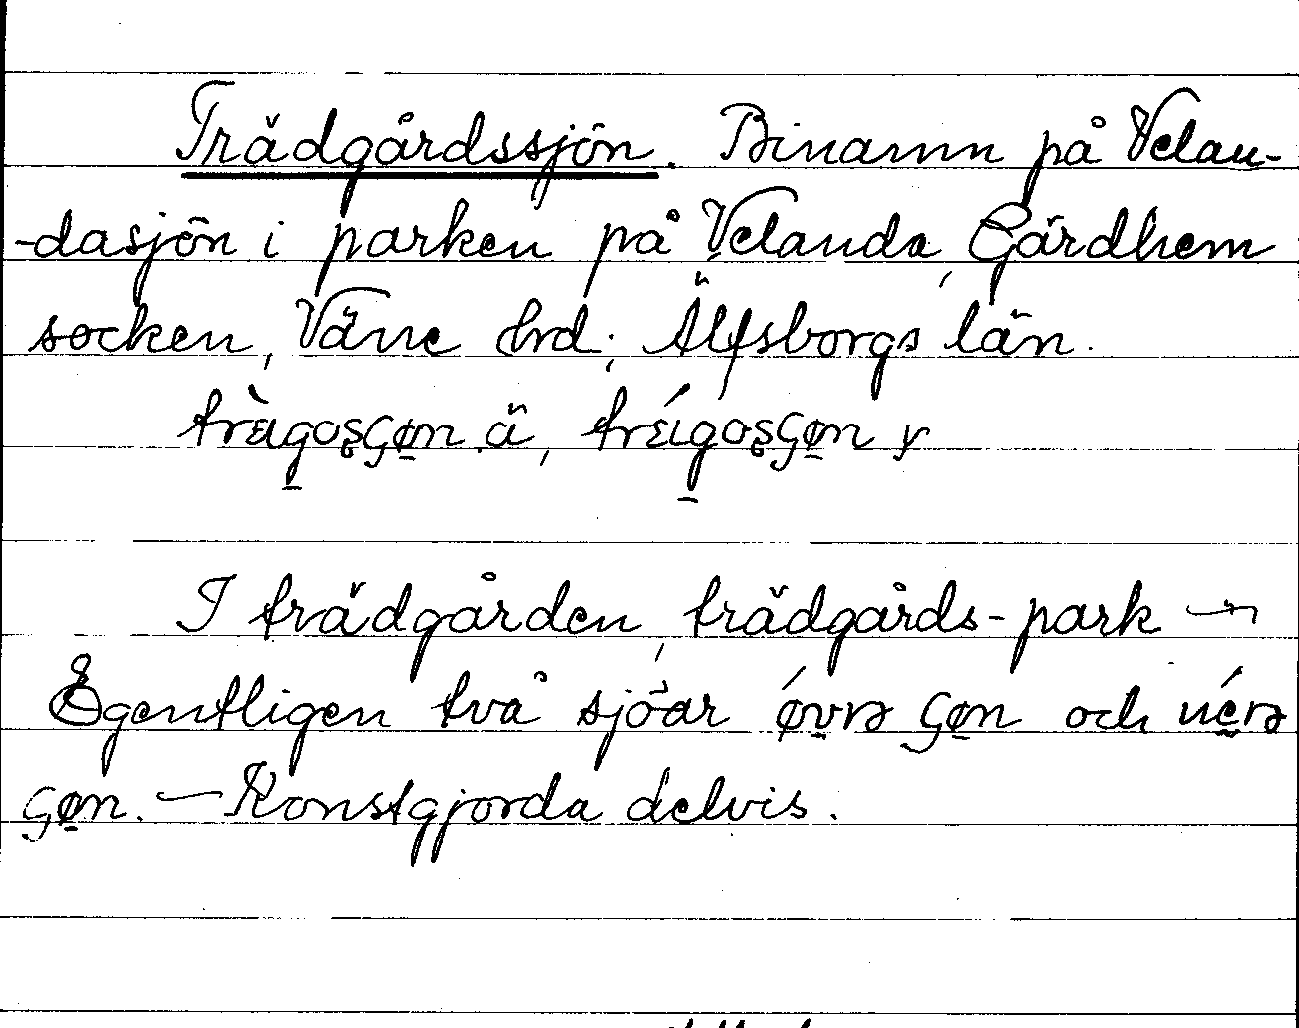 Trädgårdssjön. Binamn på Velan-
-dasjön i parken på Velanda, Gärdhem
socken, Väne hrd; Älfsborgs län.
trὲ̀gosɕøn ä, trέgosɕøn y
I trädgården, trädgårds-park —
Egentligen två sjöar ǿvrə ɕøn och nérə
ɕøn. — Konstgjorda delvis.